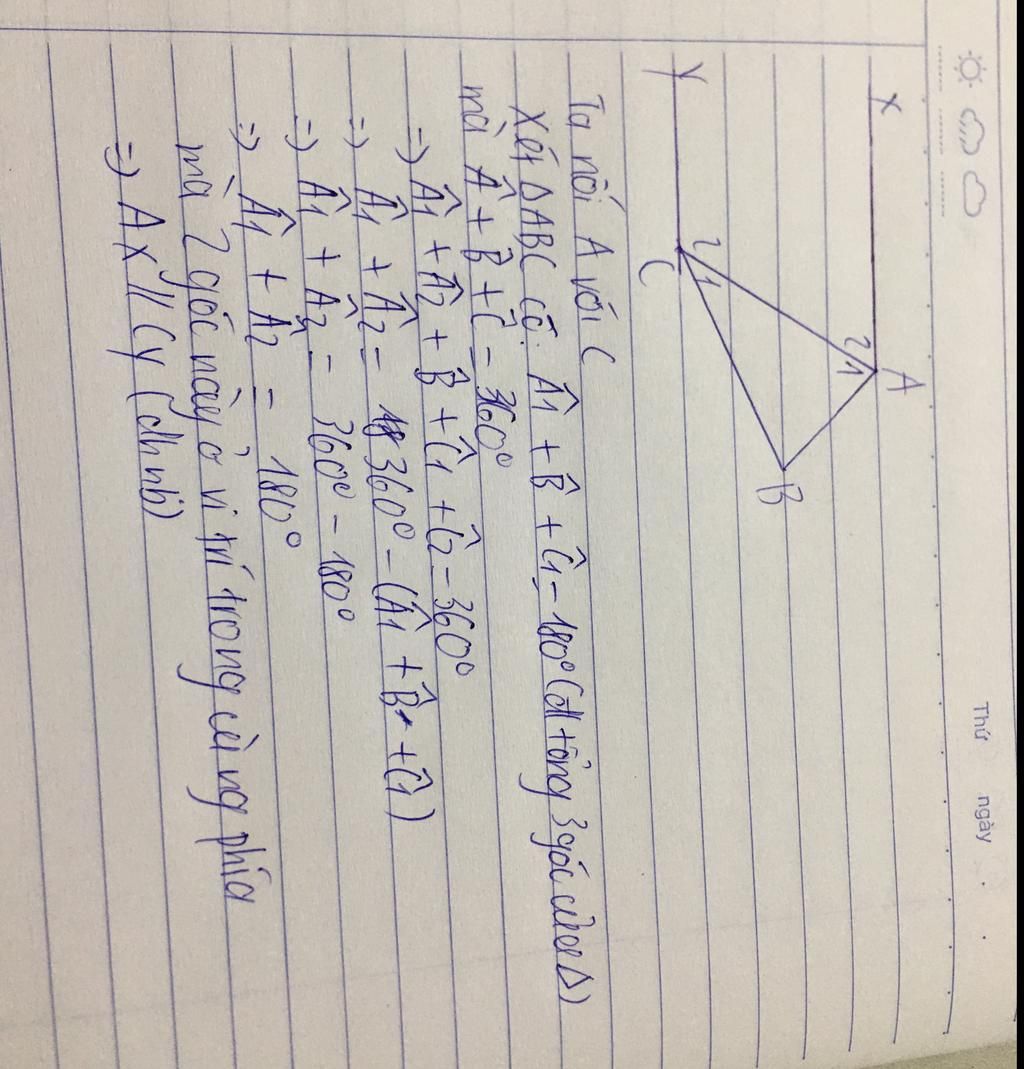 Thứ
ngày
x
A
2 1
B
y
2 1
C
Ta nối A với C
Xét ΔABC có: Â1 + B̂ + Ĉ1 = 180° (đl tổng 3 góc của Δ)
mà Â + B̂ + Ĉ = 360°
=> Â1 + Â2 + B̂ + Ĉ1 + Ĉ2 = 360°
=> Â1 + Â2 = 360° - (Â1 + B̂ + Ĉ1)
=> Â1 + Â2 = 360° - 180°
=> Â1 + Â2 = 180°
mà 2 góc này ở vị trí trong cùng phía
=> Ax // Cy (dhnb)